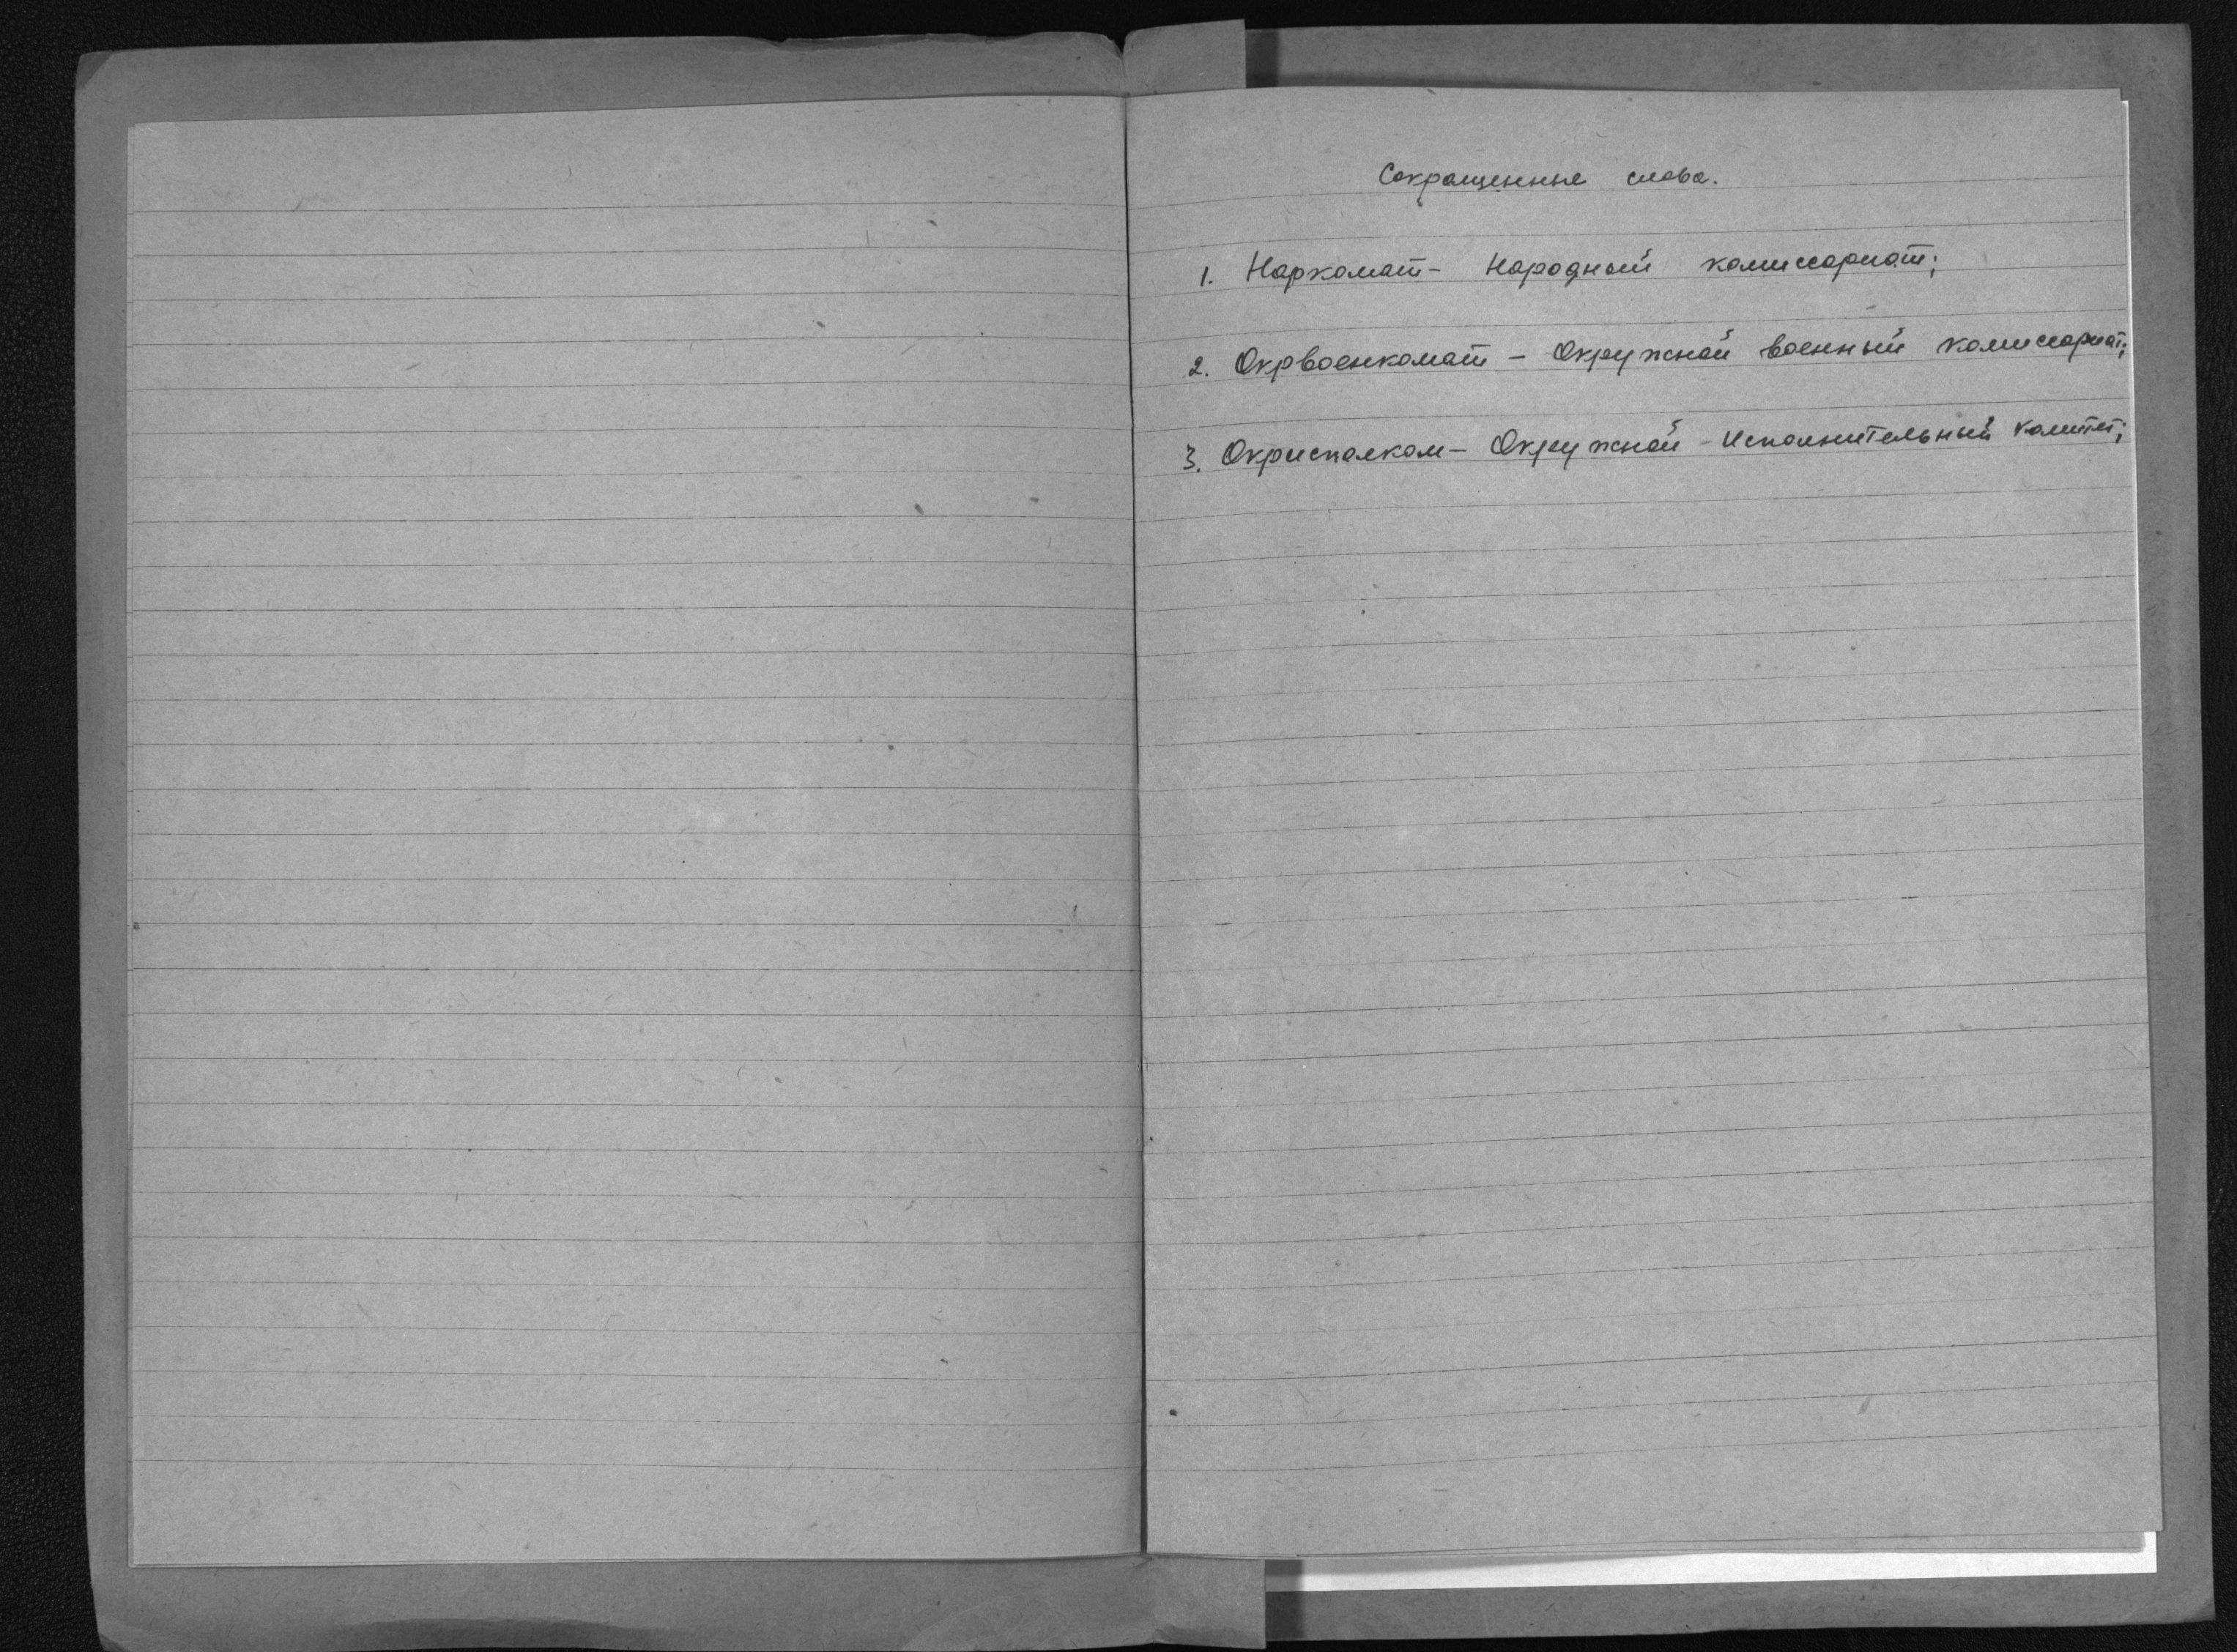 Сокращенные слова.
1. Наркомат - Народный комиссариат;
2. Окрвоенкомат - Окружной военный комиссариат;
3. Окрисполком - Окружной - Исполнительный комитет;